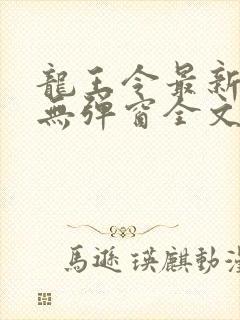 龍王令最新
無彈窗全文
馬遜瑛麒動漫